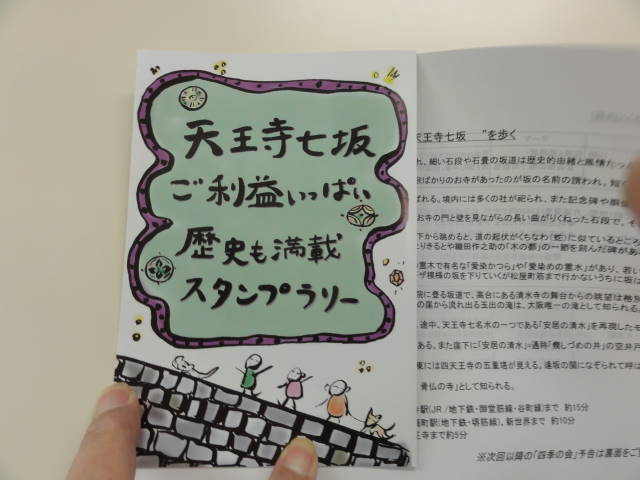 天王寺七坂
ご利益いっぱい
歴史も満載
スタンプラリー
天王寺七坂 ”を歩く
れ、細い石段や石畳の坂道は歴史的由緒と風情たっ
ばかりのお寺があったのが坂の名前の謂われ。短く
ばれる。境内には多くの社が祀られ、また記念碑や
お寺の門と壁を見ながらの長い曲がりくねった石段で、そ
下から眺めると、道の起伏がくちなわ(蛇)に似ているところ
りきると織田作之助の「木の都」の一節を刻んだ碑があ
霊木で有名な「愛染かつら」や「愛染めの霊水」があり、若い
模様の坂を下りていくが松屋町筋まで行かないうちに坂は
院に登る坂道で、高台にある清水寺の舞台からの眺望は
の崖から流れ出る玉出の滝は、大阪唯一の滝として知られる。
途中、天王寺七名水の一つである「安居の清水」を再現した
ある。また坂下に「安居の清水」=通称「癇しづめの井」の空井戸
東には四天王寺の五重塔が見える。逢坂の関になぞらえて呼ば
骨仏の寺」として知られる。
寺駅(JR/地下鉄・御堂筋線・谷町線)まで 約15分
町駅(地下鉄・堺筋線)、新世界まで 約10分
王寺まで約5分
※次回以降の「四季の会」予告は裏面をご